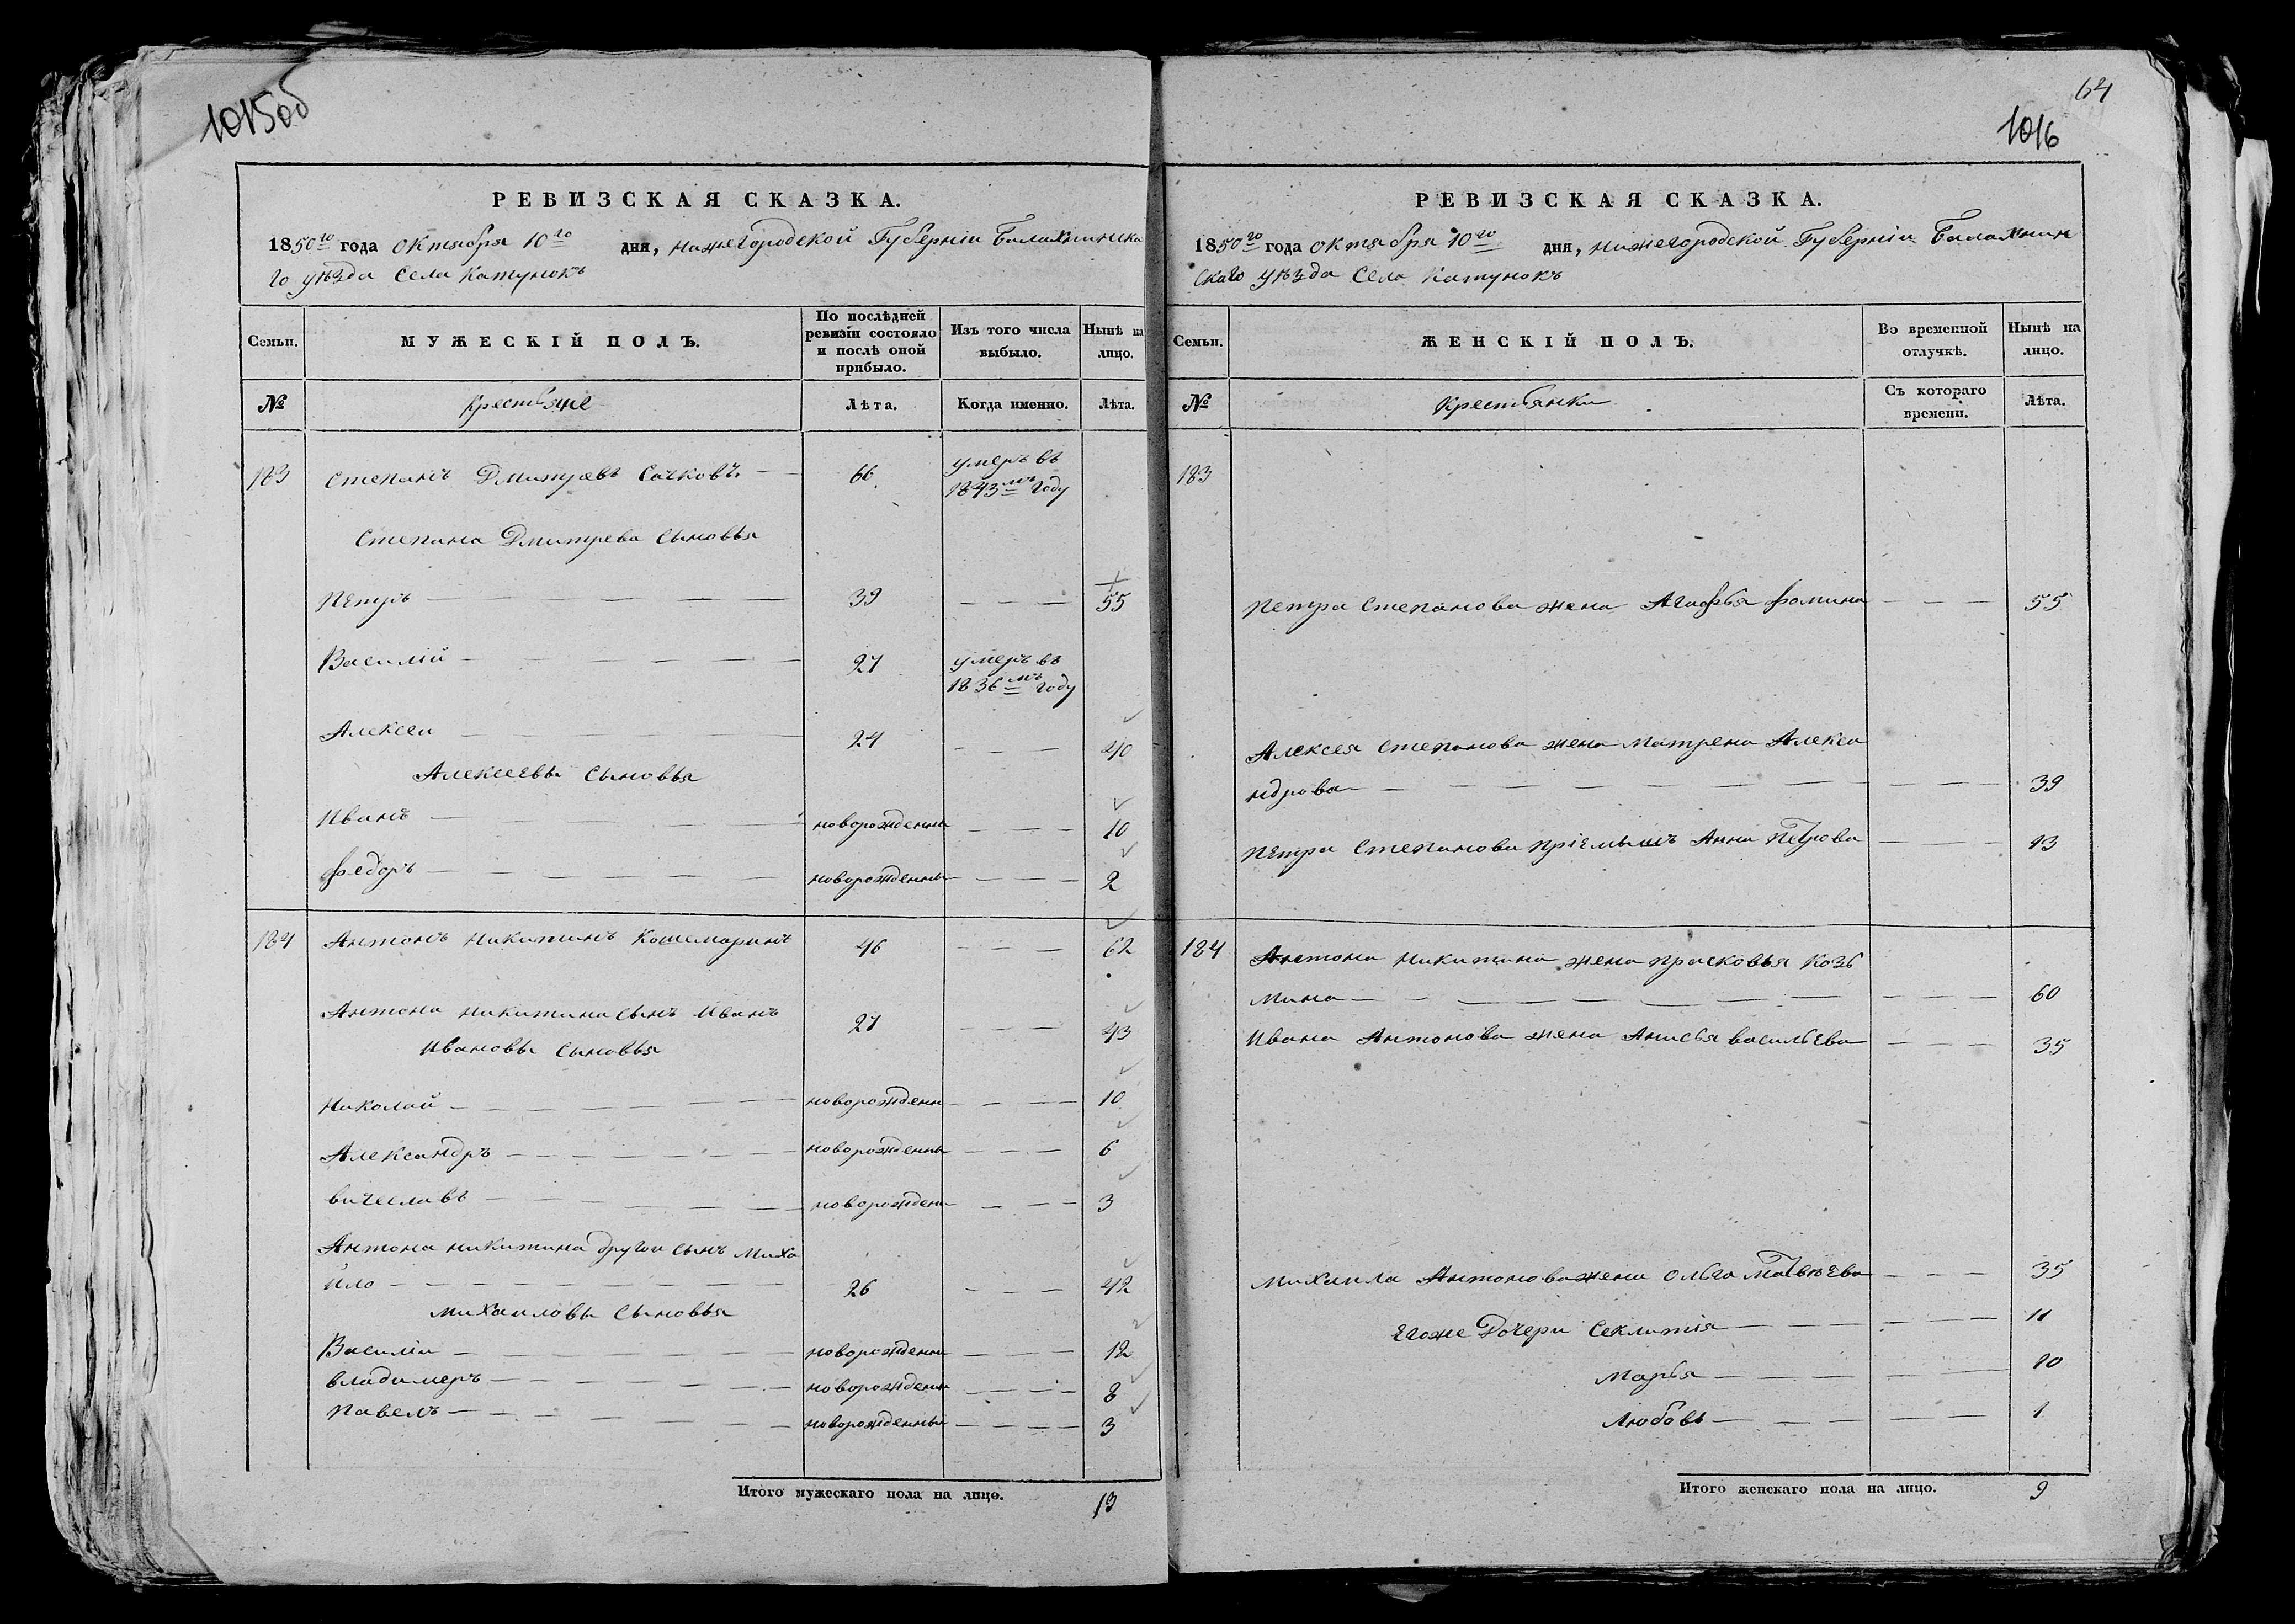 1015об
РЕВИЗСКАЯ СКАЗКА.
1850го года октября 10го дня, нижегородской Губерніи Балахнинска
го уѣзда Села Катунокъ
Семьи.
МУЖЕСКІЙ ПОЛЪ.
По послѣдней ревизіи состояло и послѣ оной прибыло.
Изъ того числа выбыло.
Нынѣ на лицо.
№
крестьяне
Лѣта.
Когда именно.
Лѣта.
183 Степанъ Дмитревъ Сачковъ — 66. умеръ въ
1843мъ году
Степана Дмитрева сыновья
Петръ — 39 — 55
Василій — 21 умеръ въ
1836мъ году
Алексеи — 24 — 40
Алексеевы сыновья
Иванъ — новорожденны — 10
федоръ — новорожденны — 2
184 Антонъ никитинъ Кошемаринъ 46 — 62
Антона никитина сынъ Иванъ 27 — 43
Ивановы сыновья
Николай — новорожденн — 10
Александръ — новорожденны — 6
вичеславъ — новорожден — 3
Антона никитина другои сынъ Миха
ило — 26 — 42
михаиловы сыновья
Василіи — новорожденн — 12
владимеръ — новорожденн — 8
Павелъ — новорожденны — 3
Итого мужескаго пола на лицо. 13
64
1016
РЕВИЗСКАЯ СКАЗКА.
1850го года октября 10го дня, нижегородской Губерніи Балахнин
скаго уѣзда Села Катунокъ
Семьи.
ЖЕНСКІЙ ПОЛЪ.
Во временной отлучкѣ.
Нынѣ на лицо.
№
крестьянки
Съ котораго времени.
Лѣта.
183
Петра Степанова жена Агафья фомина — 55
Алексея Степанова жена Матрена Алекса
ндрова — 39
Петра Степанова пріемышъ Анна Петрова — 13
184 Антона Никитина жена прасковья Козь
мина — 60
Ивана Антонова жена Анисья васильева — 35
Михаила Антонова жена Ольга Матвѣева — 35
Егоже Дочери Секлитія — 11
Марья — 10
Любовь — 1
Итого женскаго пола на лицо. 9